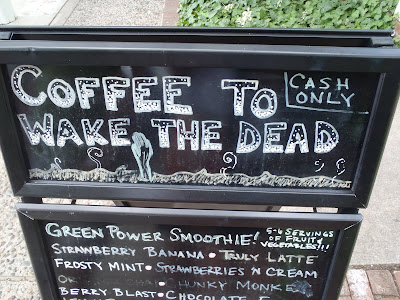 COFFEE TO
CASH ONLY
WAKE THE DEAD
GREEN POWER SMOOTHIE! 5-6 SERVINGS OF FRUIT & VEGETABLES!!!
STRAWBERRY BANANA • TRULY LATTE
FROSTY MINT • STRAWBERRIES N CREAM
HUNKY MONKEY
BERRY BLAST • CHOCOLATE